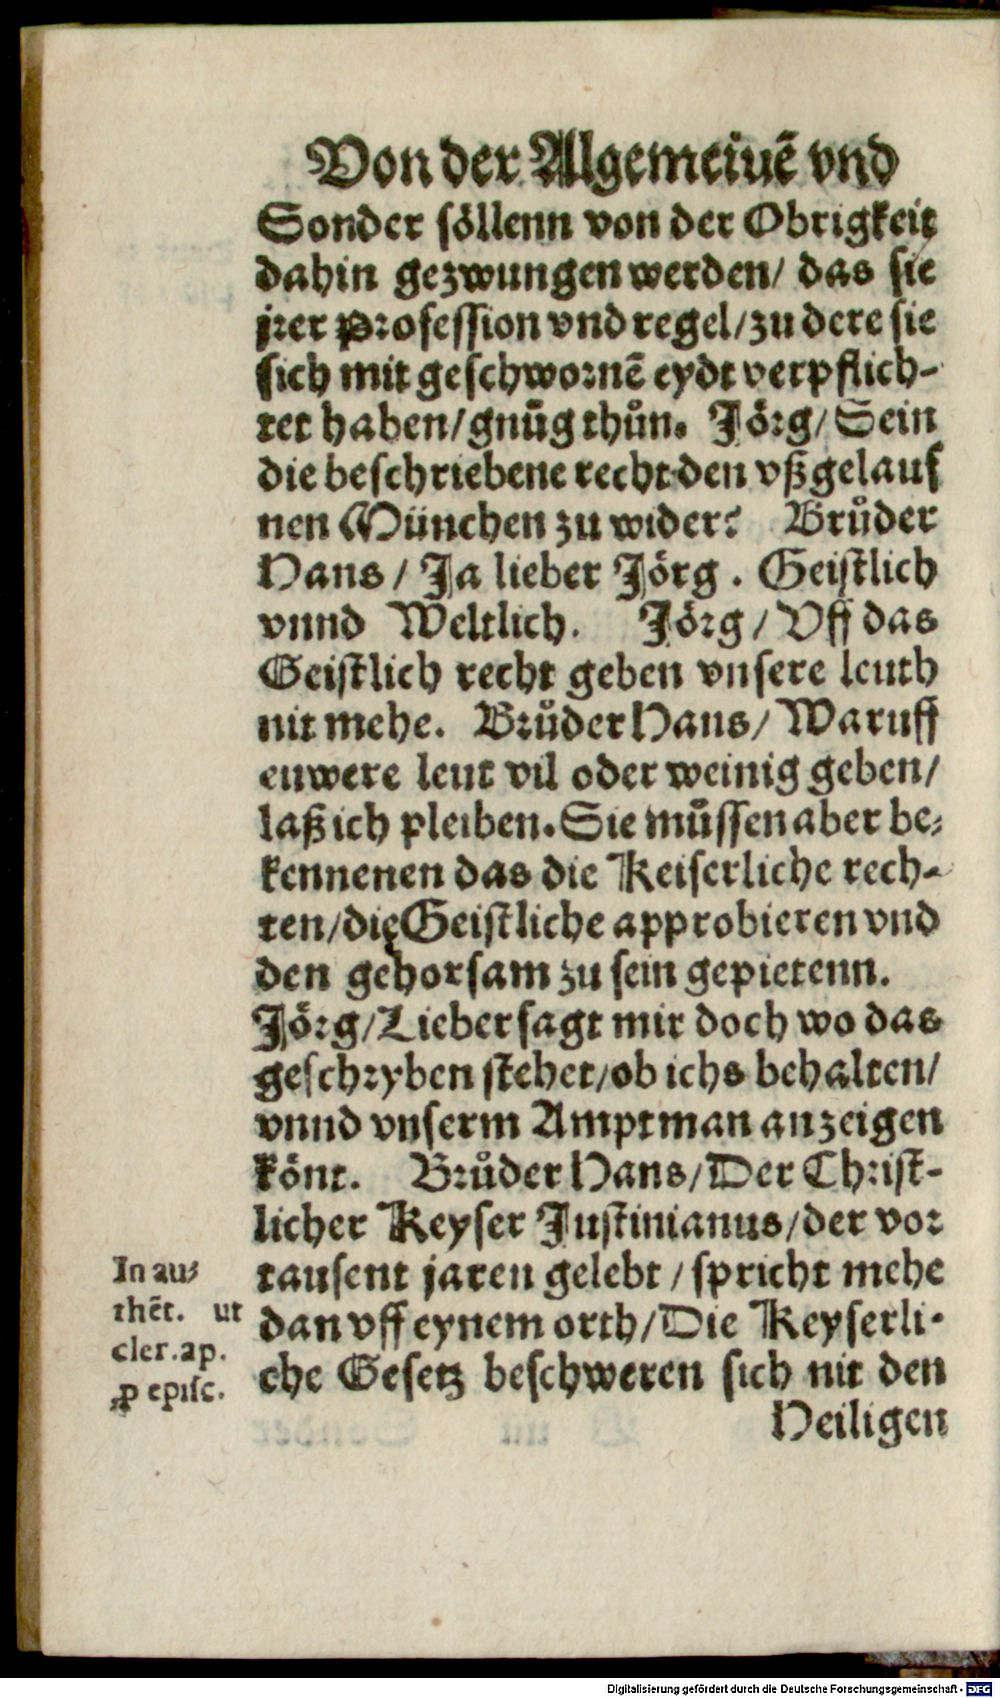 Von der Algemeinē vnd
Sonder söllenn von der Obrigkeit
dahin gezwungen werden/ das sie
jrer Profession vnd regel/zu dere sie
sich mit geschwornē eydt verpflich-
tet haben/gnůg thůn. Jörg/ Sein
die beschriebene recht den vßgelauf
nen München zu wider? Brůder
Hans/ Ja lieber Jörg. Geistlich
vnnd Weltlich. Jörg/ Vff das
Geistlich recht geben vnsere leuth
nit mehe. Brůder Hans/ Waruff
euwere leut vil oder weinig geben/
laß ich pleiben. Sie můssen aber be-
kennenen das die Keiserliche rech-
ten/die Geistliche approbieren vnd
den gehorsam zu sein gepietenn.
Jörg/Lieber sagt mir doch wo das
geschryben stehet/ob ichs behalten/
vnnd vnserm Amptman anzeigen
könt. Brůder Hans/Der Christ-
licher Keyser Justinianus/der vor
tausent jaren gelebt/ spricht mehe
dan vff eynem orth/Die Keyserli-
che Gesetz beschweren sich nit den
Heiligen
In au-
thēt. ut
cler. ap.
ꝓ episc.
Digitalisierung gefördert durch die Deutsche Forschungsgemeinschaft - DFG